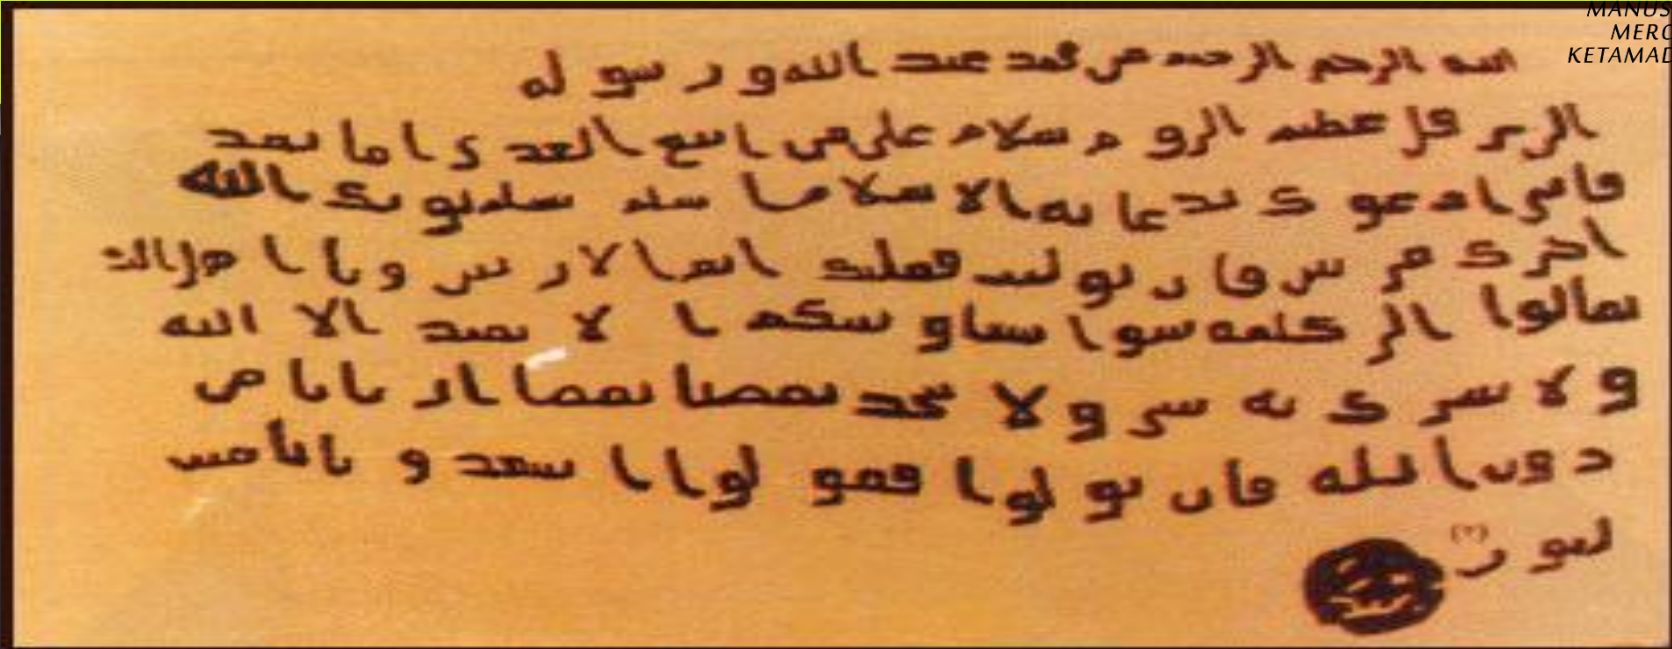 MANUS
MERC
KETAMAD
الله الرحمن الرحيم من محمد عبد الله ورسوله
الى هرقل عظيم الروم سلام على من اتبع الهدى اما بعد
فانى ادعوك بدعاية الاسلام اسلم تسلم يوتك الله
اجرك مرتين فان توليت فعليك اثم الاريسين ويا اهل الك
تعالوا الى كلمة سوا بيننا وبينكم ا لا نعبد الا الله
ولا نشرك به شى ولا يتخذ بعضنا بعضا اربابا من
دون الله فان تولوا فقولوا اشهدوا بانا مس
لمون